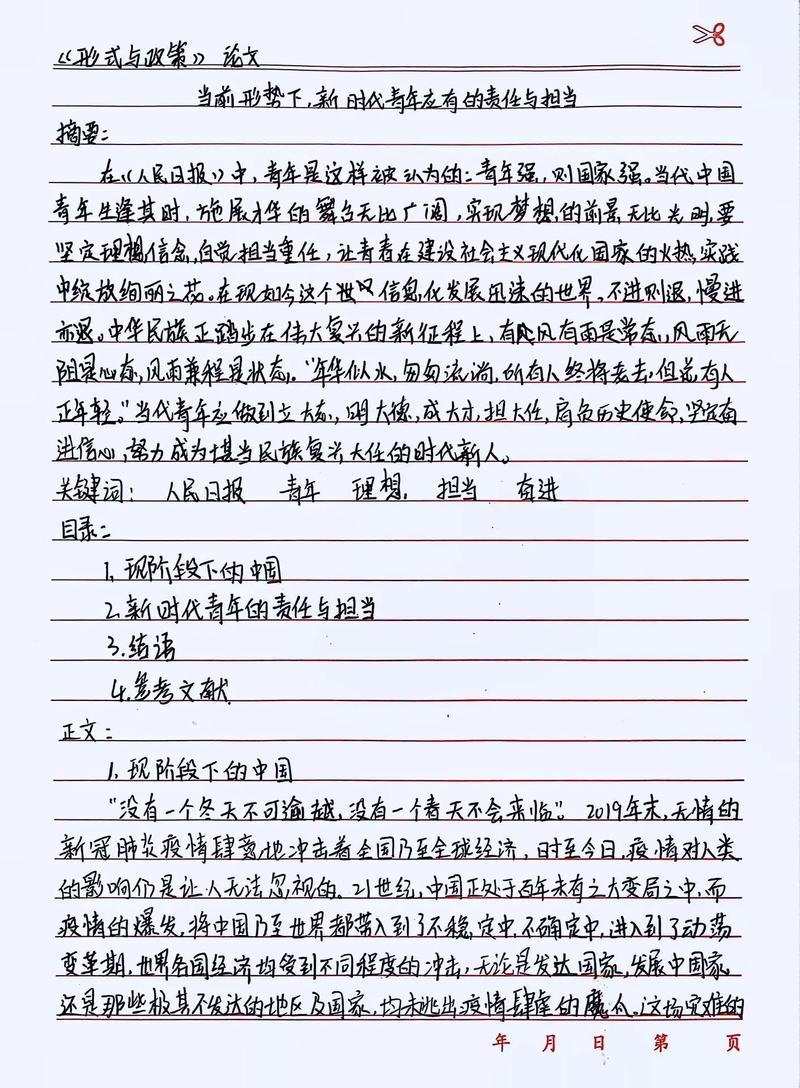 《形式与政策》 论文
当前形势下,新时代青年应有的责任与担当
摘要:
在《人民日报》中,青年是这样被认为的:青年强,则国家强。当代中国
青年生逢其时,施展才华的舞台无比广阔,实现梦想的前景无比光明,要
坚定理想信念,自觉担当重任,让青春在建设社会主义现代化国家的火热实践
中绽放绚丽之花。在现如今这个世 信息化发展迅速的世界,不进则退,慢进
亦退。中华民族正踏步在伟大复兴的新征程上,有风有雨是常态,风雨无
阻是心态,风雨兼程是状态。“年华似水,匆匆流淌,所有人终将老去,但总有人
正年轻。”当代青年应做到立大志,明大德,成大才,担大任,肩负历史使命,坚定奋
进信心,努力成为堪当民族复兴大任的时代新人。
关键词: 人民日报 青年 理想 担当 奋进
目录:
1.现阶段下的中国
2.新时代青年的责任与担当
3.结语
4.参考文献
正文:
1.现阶段下的中国
“没有一个冬天不可逾越,没有一个春天不会来临”。2019年末,无情的
新冠肺炎疫情肆虐地冲击着全国乃至全球经济,时至今日,疫情对人类
的影响仍是让人无法忽视的。21世纪,中国正处于百年未有之大变局之中,而
疫情的爆发,将中国乃至世界都带入到了不稳定中,不确定中,进入到了动荡
变革期,世界各国经济均受到不同程度的冲击,无论是发达国家,发展中国家
还是那些极其不发达的地区及国家,均未逃出疫情肆虐的魔爪。这场灾难的
年 月 日 第 页